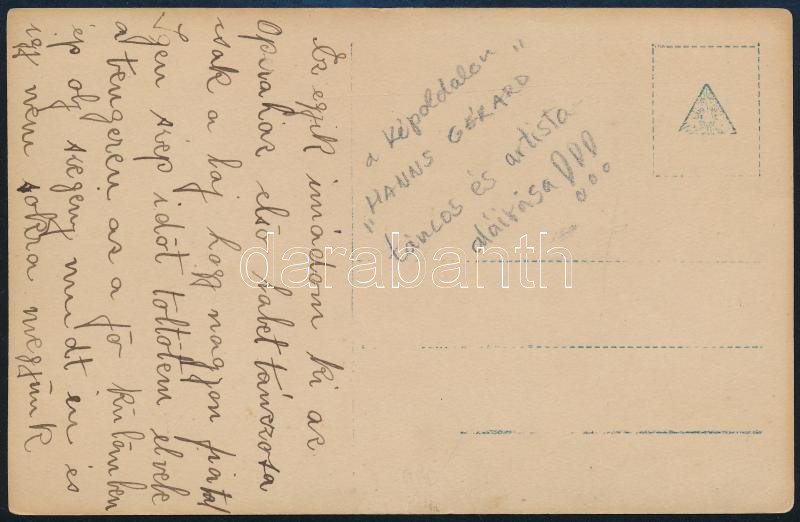 Ez egyik imádóm ki az
Operaház első balet tánczosa
csak a baj hogy nagyon fiatal
Igen szép időt töltöttem elvele
a tengeren az a fő külömben
ép oly szegény mindt én és
igy nem sokra megyünk
a képoldalon
"HANNS GÉRARD"
táncos és artista
aláírása!!!
darabanth